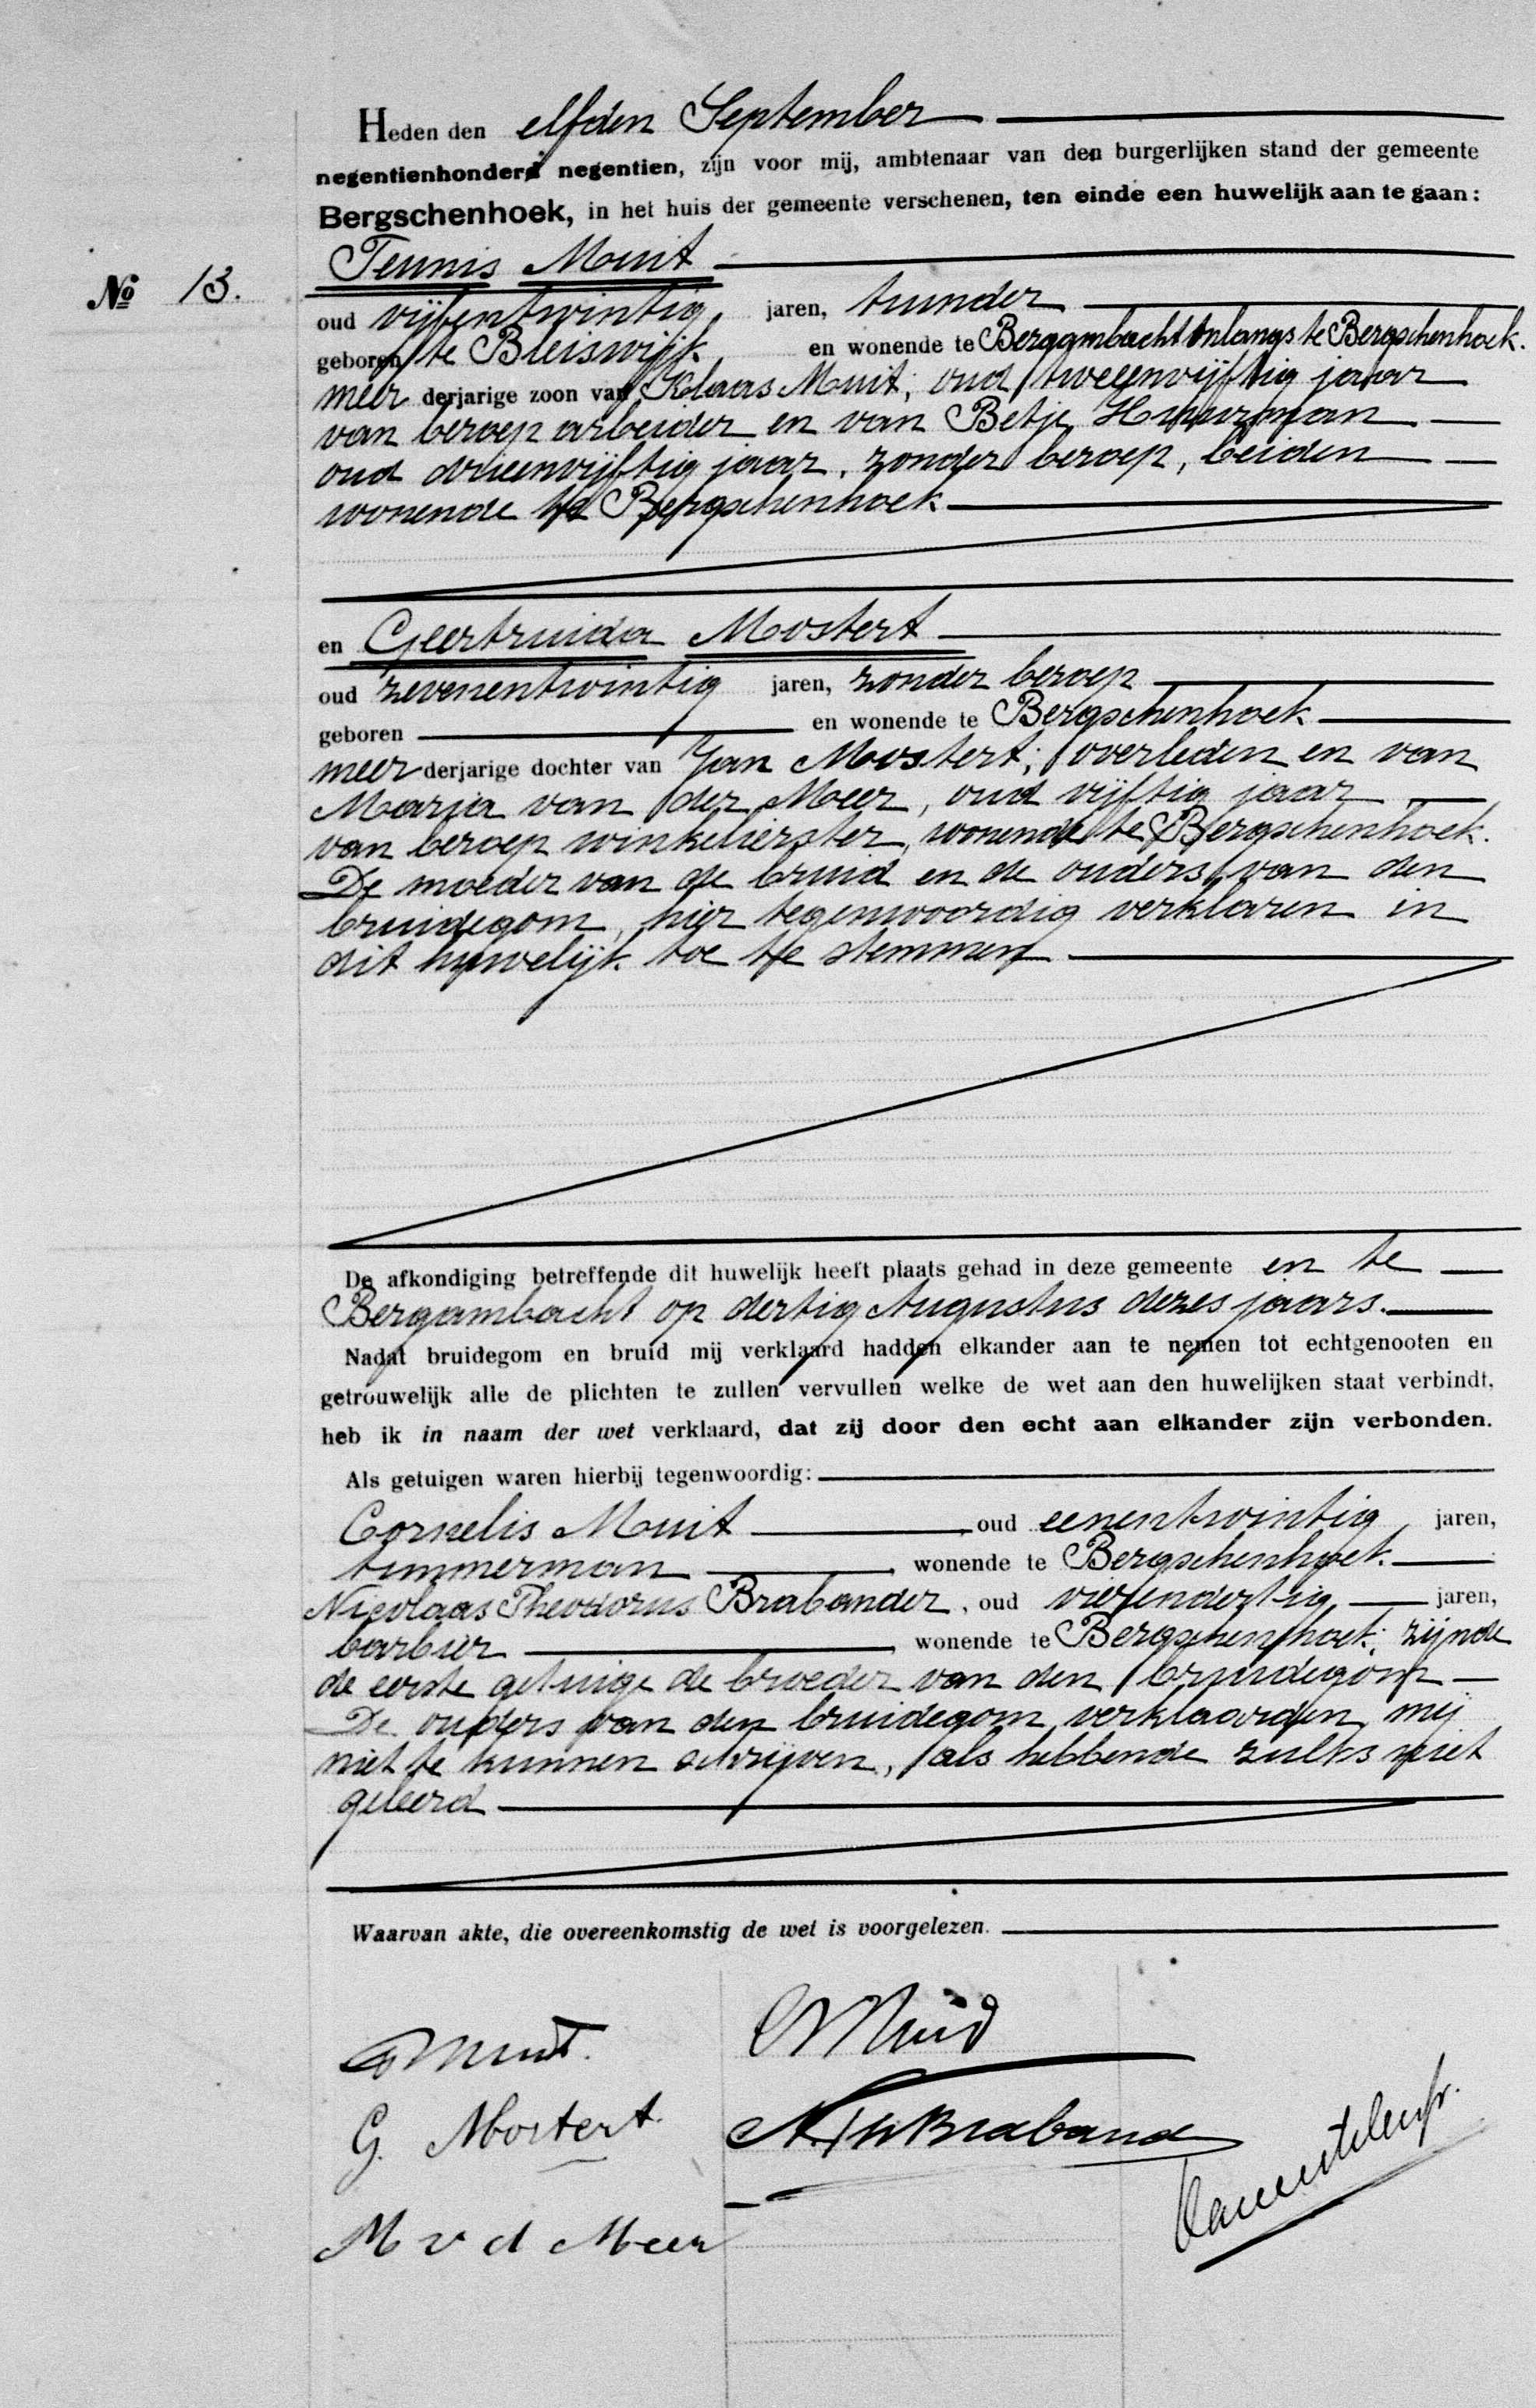 Heden den elfden September
negentienhonderd negentien, zijn voor mij, ambtenaar van den burgerlijken stand der gemeente
Bergschenhoek, in het huis der gemeente verschenen, ten einde een huwelijk aan te gaan:
No 13.
Teunis Muit
oud vijfentwintig jaren, tuinder
geboren te Bleiswijk en wonende te Bergambacht onlangs te Bergschenhoek.
meer derjarige zoon van Klaas Muit; oud tweeenvijftig jaar
van beroep arbeider en van Betje Huurman
oud drieenvijftig jaar, zonder beroep, beiden
wonende te Bergschenhoek
en Geertruida Mostert
oud zevenentwintig jaren, zonder beroep
geboren en wonende te Bergschenhoek
meer derjarige dochter van Jan Mostert; overleden en van
Marja van der Meer, oud vijftig jaar
van beroep winkelierster, wonende te Bergschenhoek.
De moeder van de bruid en de ouders van den
bruidegom, hier tegenwoordig verklaren in
dit huwelijk toe te stemmen
De afkondiging betreffende dit huwelijk heeft plaats gehad in deze gemeente en te
Bergambacht op dertig Augustus dezes jaars.
Nadat bruidegom en bruid mij verklaard hadden elkander aan te nemen tot echtgenooten en
getrouwelijk alle de plichten te zullen vervullen welke de wet aan den huwelijken staat verbindt,
heb ik in naam der wet verklaard, dat zij door den echt aan elkander zijn verbonden.
Als getuigen waren hierbij tegenwoordig:
Cornelis Muit oud eenentwintig jaren,
timmerman wonende te Bergschenhoek.
Nicolaas Theodorus Brabander, oud vierendertig jaren,
barbier wonende te Bergschenhoek; zijnde
de eerste getuige de broeder van den bruidegom
De ouders van den bruidegom verklaarden mij
niet te kunnen schrijven, als hebbende zulks niet
geleerd
Waarvan akte, die overeenkomstig de wet is voorgelezen.
T Muit. C Muid
G. Mostert N Th Braband
M v d Meer